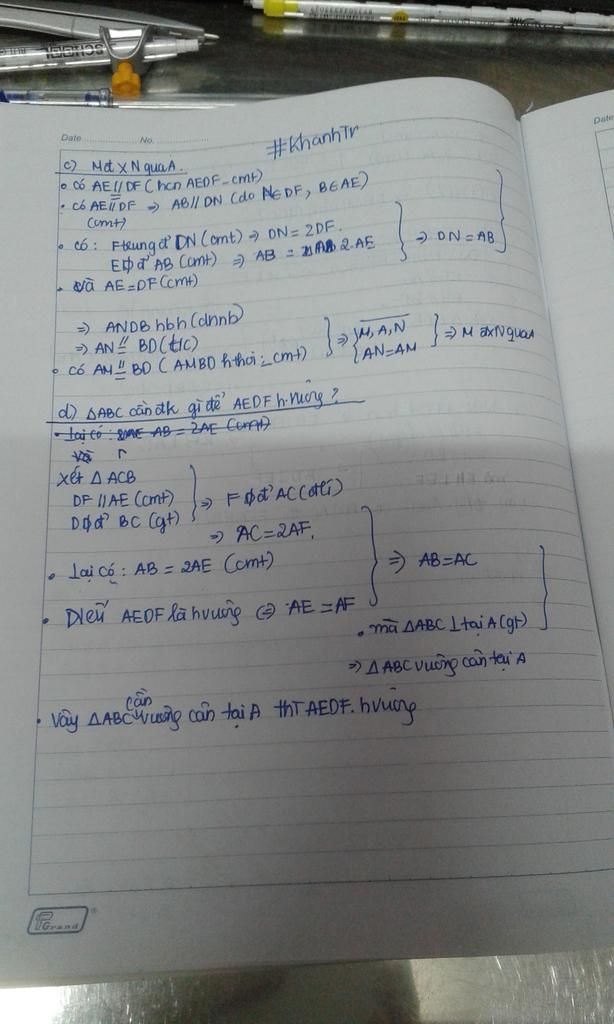 Date ............ No. ............
#KhanhTr
c) M đx N qua A.
• có AE // DF (hcn AEDF - cmt)
• có AE // DF ⇒ AB // DN (do N∈DF, B∈AE)
(cmt)
• có : F trung đ' DN (cmt) ⇒ DN = 2DF.
E đ' AB (cmt) ⇒ AB = 2.AE
⇒ DN = AB
• và AE = DF (cmt)
⇒ ANDB hbh (dhnb)
⇒ AN // BD (t/c)
• có AM // BD (AMBD h.thoi - cmt)
⇒ M, A, N
AN = AM
⇒ M đx N qua A
d) ΔABC cần đk gì để AEDF h.vuông ?
• Lại có : AB = 2AE (cmt)
xét Δ ACB
DF // AE (cmt)
D đ' BC (gt)
⇒ F đ' AC (đlí)
⇒ AC = 2AF.
• Lại có : AB = 2AE (cmt)
⇒ AB = AC
• Để AEDF là hvuông ⇔ AE = AF
• mà ΔABC ⊥ tại A (gt)
⇒ ΔABC vuông cân tại A
• Vậy ΔABC cần vuông cân tại A thì AEDF. hvuông
Grand
Date